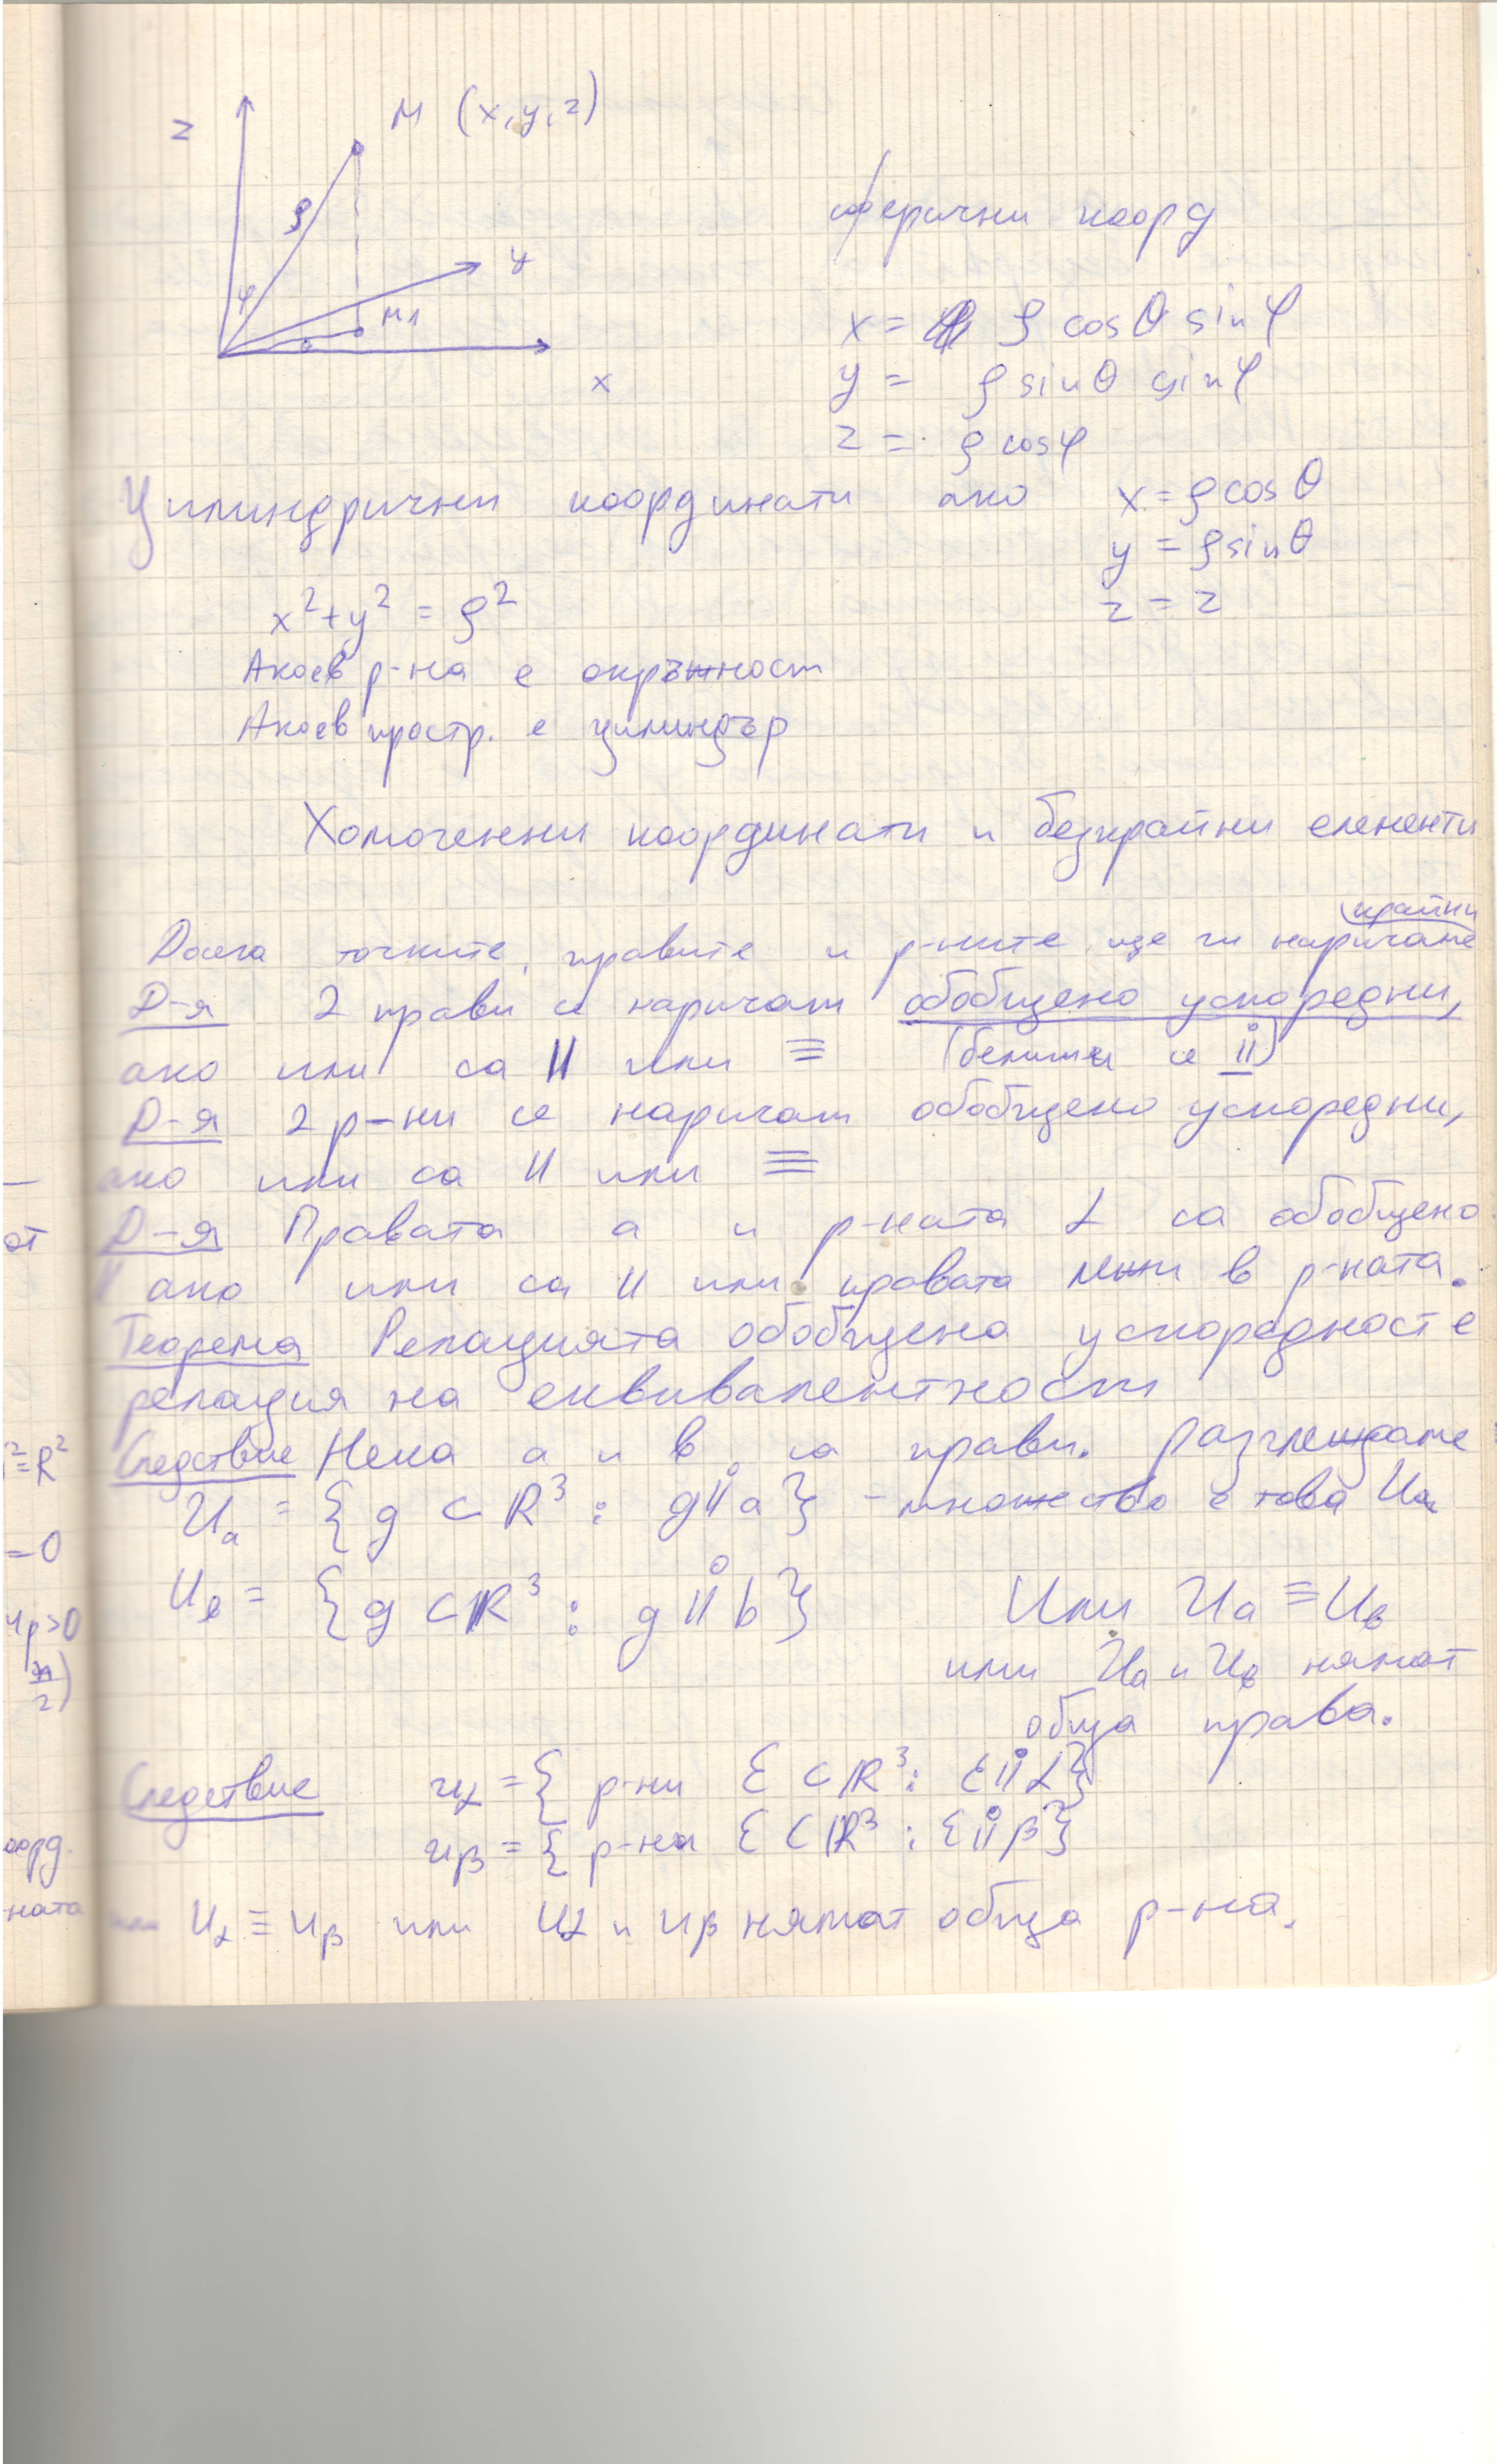 z
M (x, y, z)
ρ
φ
y
M1
θ
x
сферични коорд
x = ρ cos θ sin φ
y = ρ sin θ sin φ
z = ρ cos φ
Цилиндрични координати ако x = ρ cos θ
y = ρ sin θ
z = z
x² + y² = ρ²
Ако е в р-на е окръжност
Ако е в простр. е цилиндър
Хомогенни координати и безкрайни елементи
крайни
Досега точките, правите и р-ните ще ги наричаме
Д-я 2 прави се наричат обобщено успоредни,
ако или са || или ≡ (бележи се ||°)
Д-я 2 р-ни се наричат обобщено успоредни,
ако или са || или ≡
Д-я Правата a и р-ната α са обобщено
|| ако или са || или правата лежи в р-ната.
Теорема Релацията обобщена успоредност е
релация на еквивалентност
Следствие Нека a и b са прави. Разглеждаме
U_a = {g ⊂ R³ : g ||° a} - множество е това U_a
U_b = {g ⊂ R³ : g ||° b} Или U_a ≡ U_b
или U_a и U_b нямат
обща права.
Следствие U_α = { р-ни ε ⊂ R³ : ε ||° α}
U_β = { р-на ε ⊂ R³ : ε ||° β}
или U_α ≡ U_β или U_α и U_β нямат обща р-на.
от
² = R²
= 0
и ρ > 0
оорд.
ната